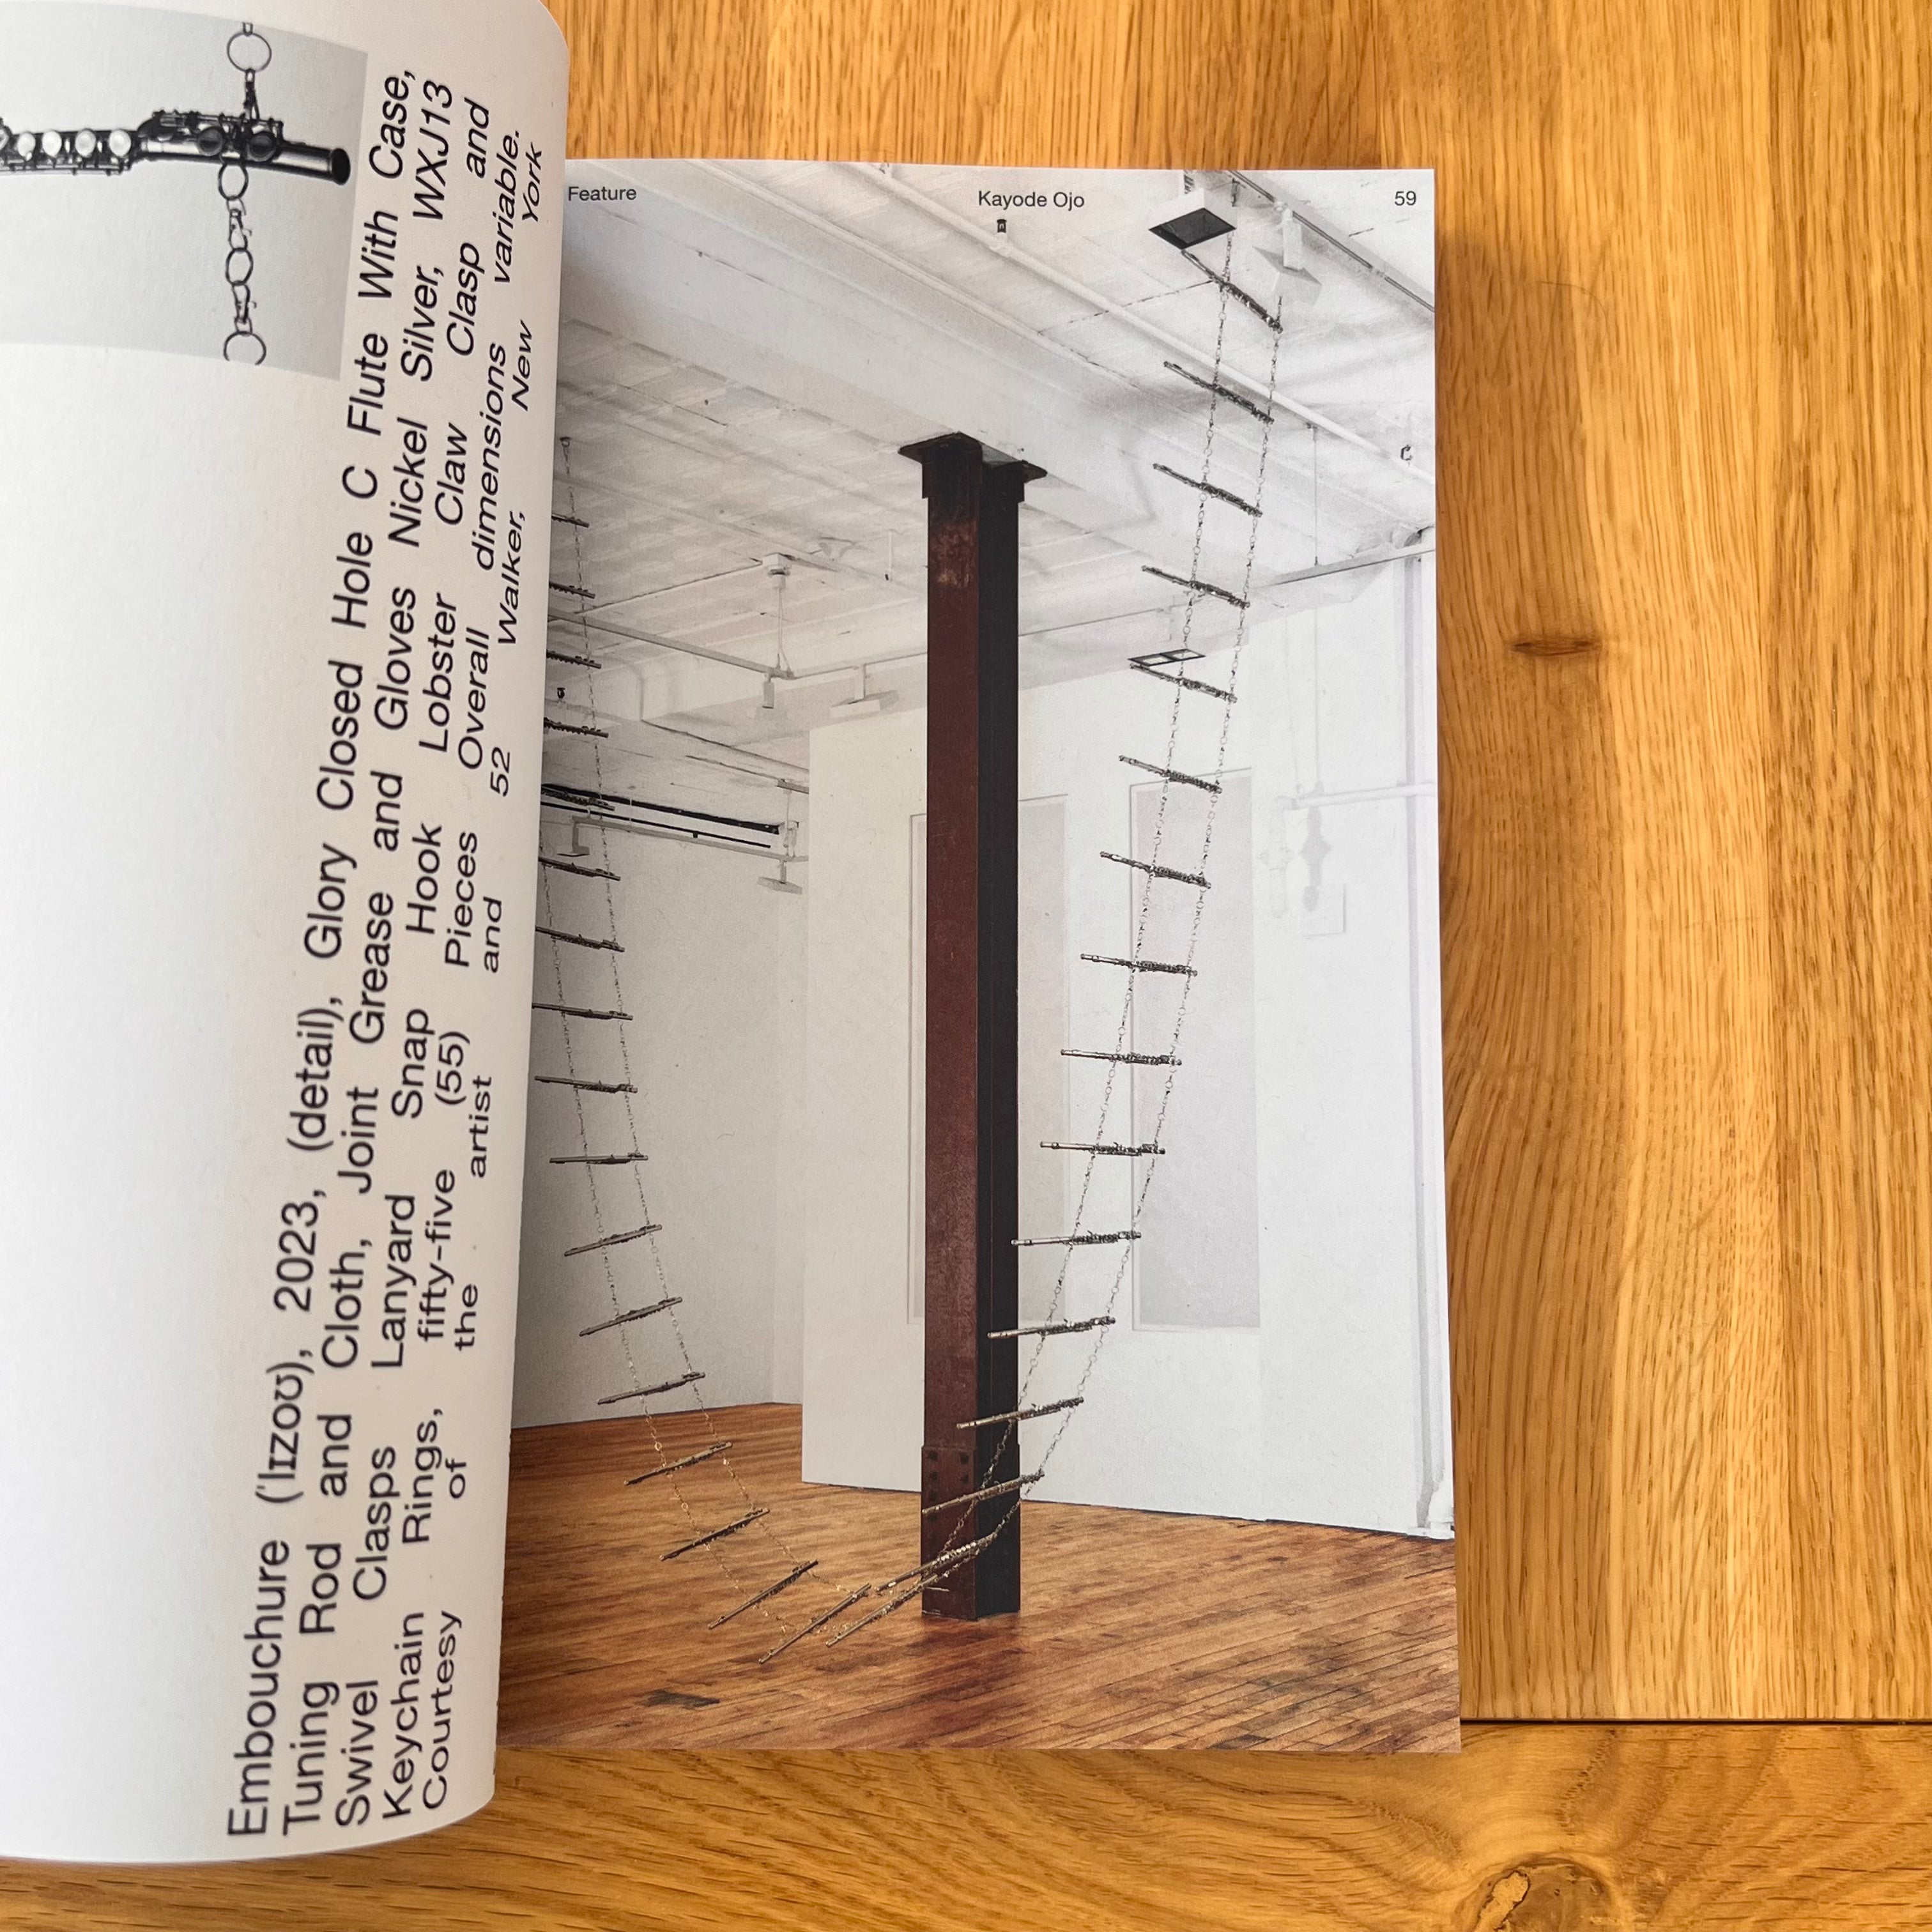 Embouchure (ˈlɪzoʊ), 2023, (detail), Glory Closed Hole C Flute With Case,
Tuning Rod and Cloth, Joint Grease and Gloves Nickel Silver, WXJ13
Swivel Clasps Lanyard Snap Hook Lobster Claw Clasp and
Keychain Rings, fifty-five (55) Pieces Overall dimensions variable.
Courtesy of the artist and 52 Walker, New York
Feature
Kayode Ojo
59